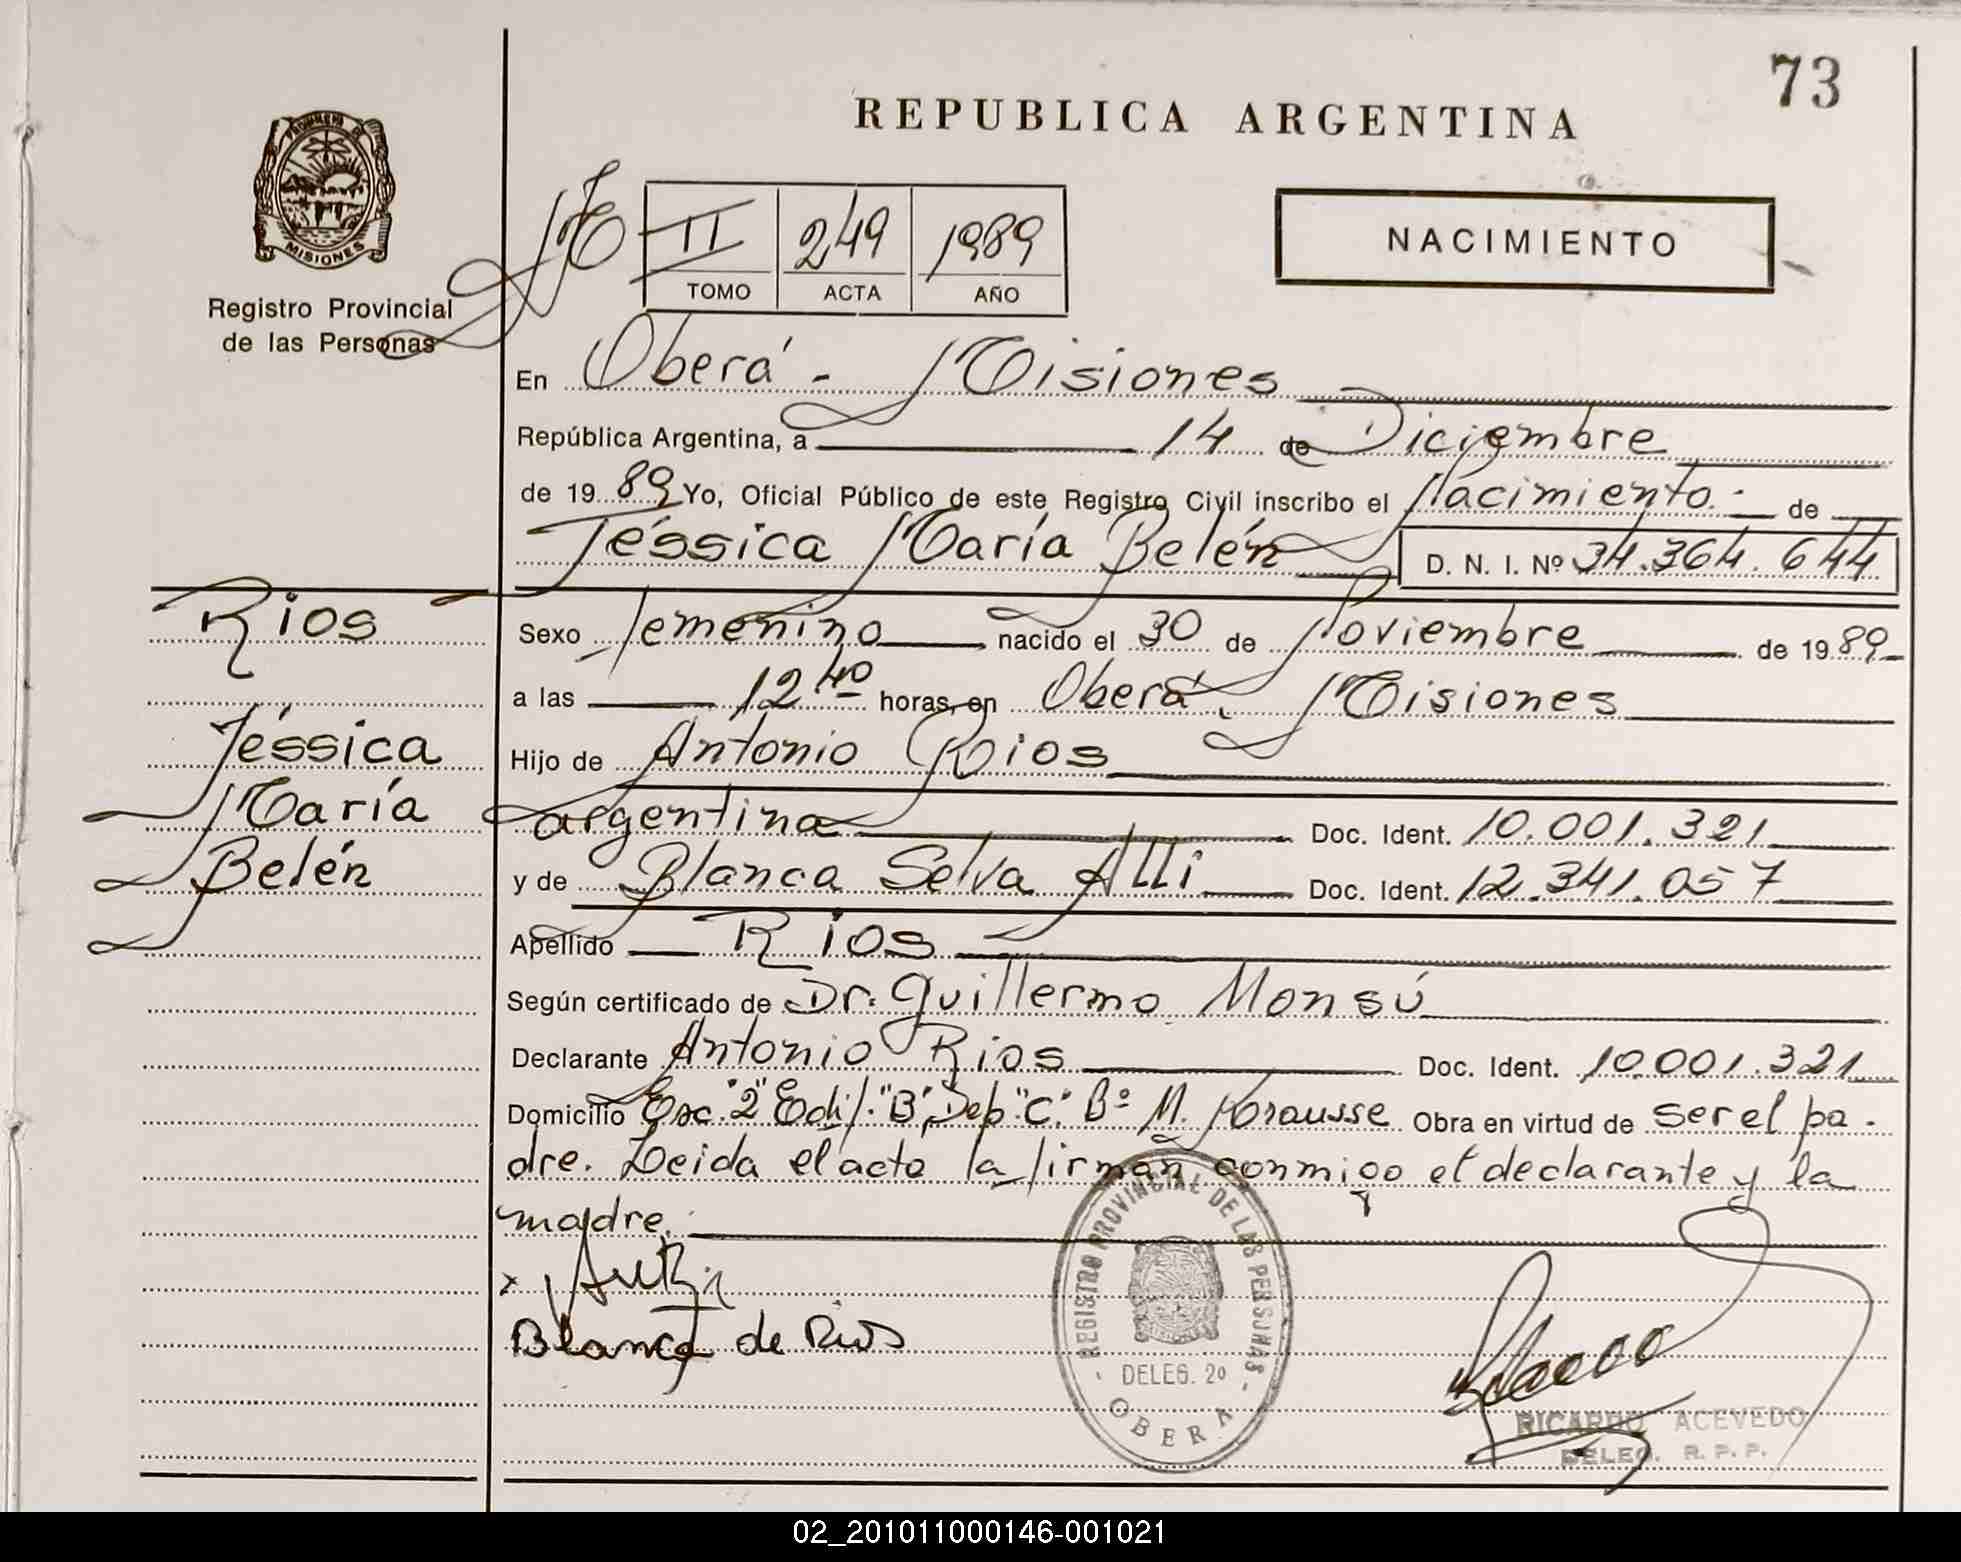 73
REPUBLICA ARGENTINA
PROVINCIA DE
MISIONES
Registro Provincial
de las Personas
II 249 1989
TOMO ACTA AÑO
NACIMIENTO
En Oberá - Misiones
República Argentina, a 14 de Diciembre
de 1989 Yo, Oficial Público de este Registro Civil inscribo el Nacimiento.- de
Jéssica María Belén D. N. I. Nº 34.364.644
Rios
Sexo Femenino nacido el 30 de Noviembre de 1989
a las 12 40 horas, en Oberá, Misiones
Jéssica
María
Belén
Hijo de Antonio Rios
argentina Doc. Ident. 10.001.321
y de Blanca Selva Alli Doc. Ident. 12.341.057
Apellido Rios
Según certificado de Dr. Guillermo Monsú
Declarante Antonio Rios Doc. Ident. 10.001.321
Domicilio Esc. "2" Edif. "B", Dep. "C". Bº M. Krausse Obra en virtud de ser el pa-
dre. Leida el acta la firman conmigo el declarante y la
madre.
x
Blanca de Rios
REGISTRO PROVINCIAL DE LAS PERSONAS
DELEG. 2º
OBERA
RICARDO ACEVEDO
DELEG. R. P. P.
02_201011000146-001021